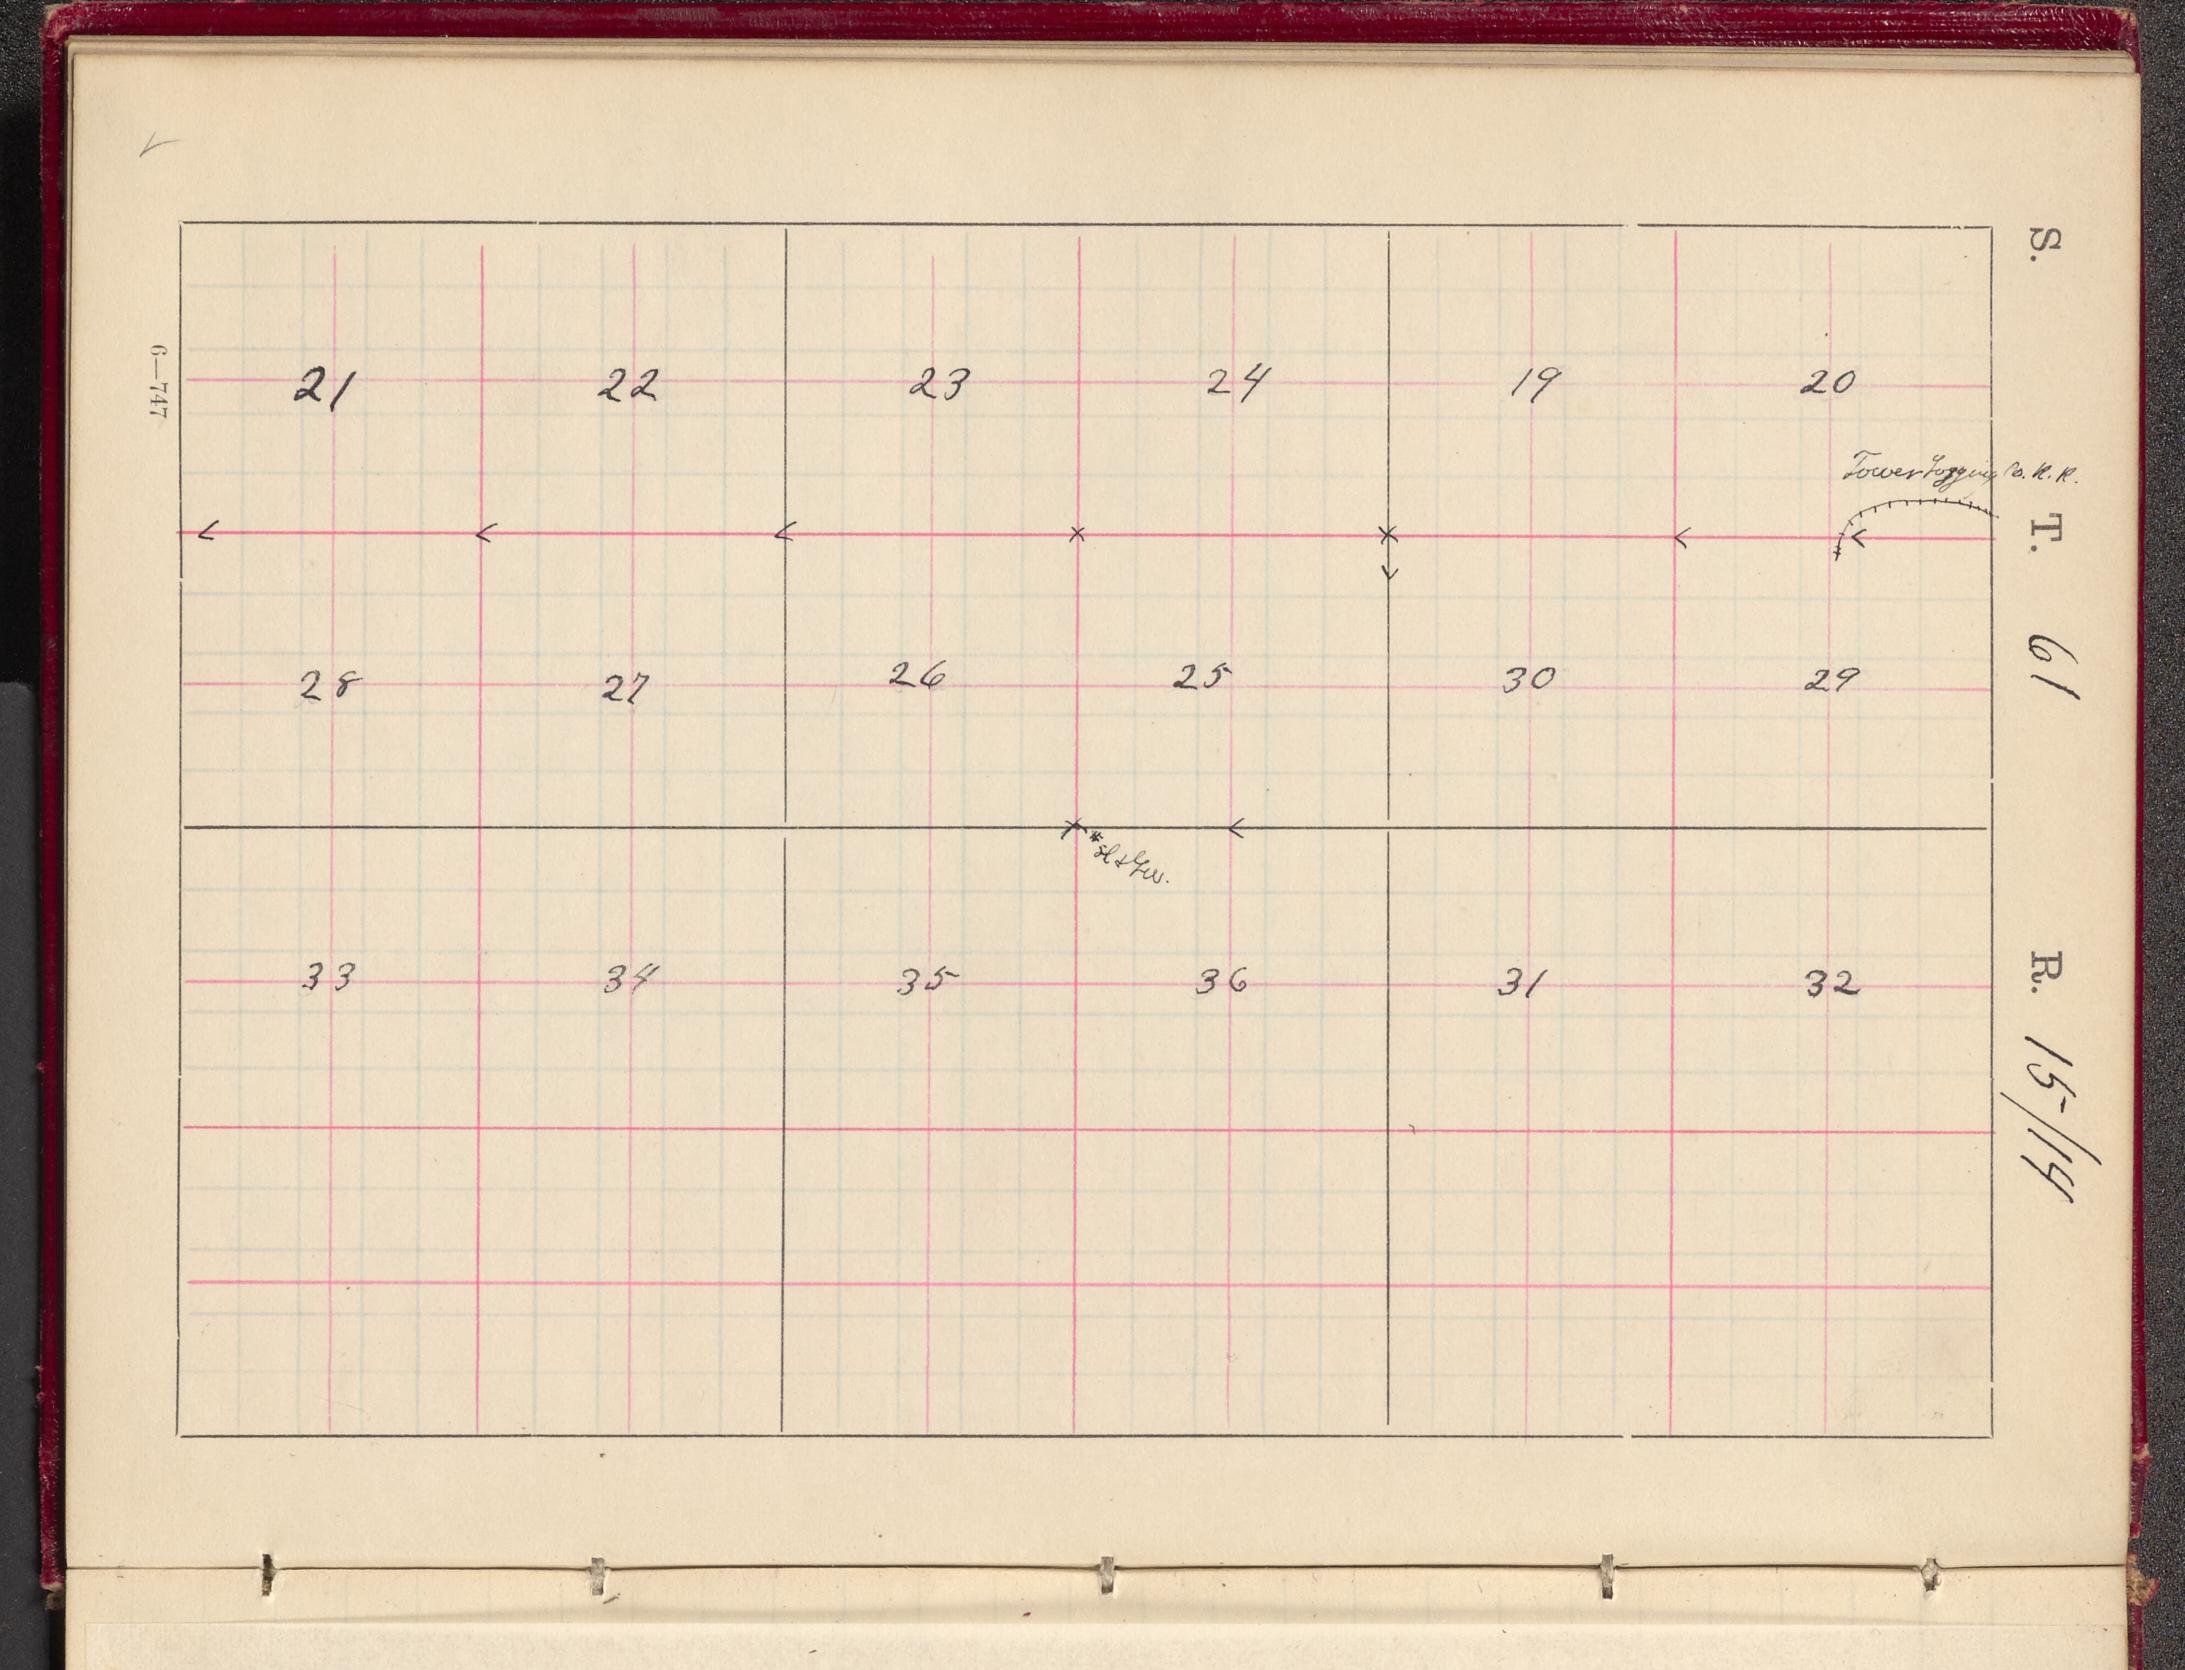 S. T. 61 R. 15/14
6—747
21 22 23 24 19 20
Tower Logging Co. R. R.
28 27 26 25 30 29
33 34 35 36 31 32